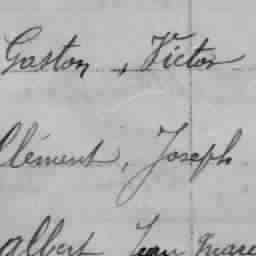 Gaston, Victor
Clément, Joseph
albert Jean Marc